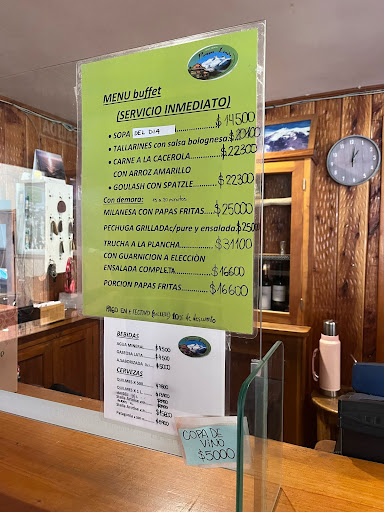 MENU buffet
(SERVICIO INMEDIATO)
• SOPA DEL DIA $14500
• TALLARINES con salsa bolognesa $20100
• CARNE A LA CACEROLA $22300
CON ARROZ AMARILLO
• GOULASH CON SPATZLE $22300
Con demora:
MILANESA CON PAPAS FRITAS $25000
PECHUGA GRILLADA c/pure y ensalada
TRUCHA A LA PLANCHA $31100
CON GUARNICION A ELECCIÓN
ENSALADA COMPLETA $16600
PORCION PAPAS FRITAS $16600
PAGO EN EFECTIVO 10% de descuento
BEBIDAS
AGUA MINERAL $4500
GASEOSA LATA $4500
$5000
CERVEZAS
QUILMES X 500
QUILMES X 1 L
COPA DE
VINO
$5000